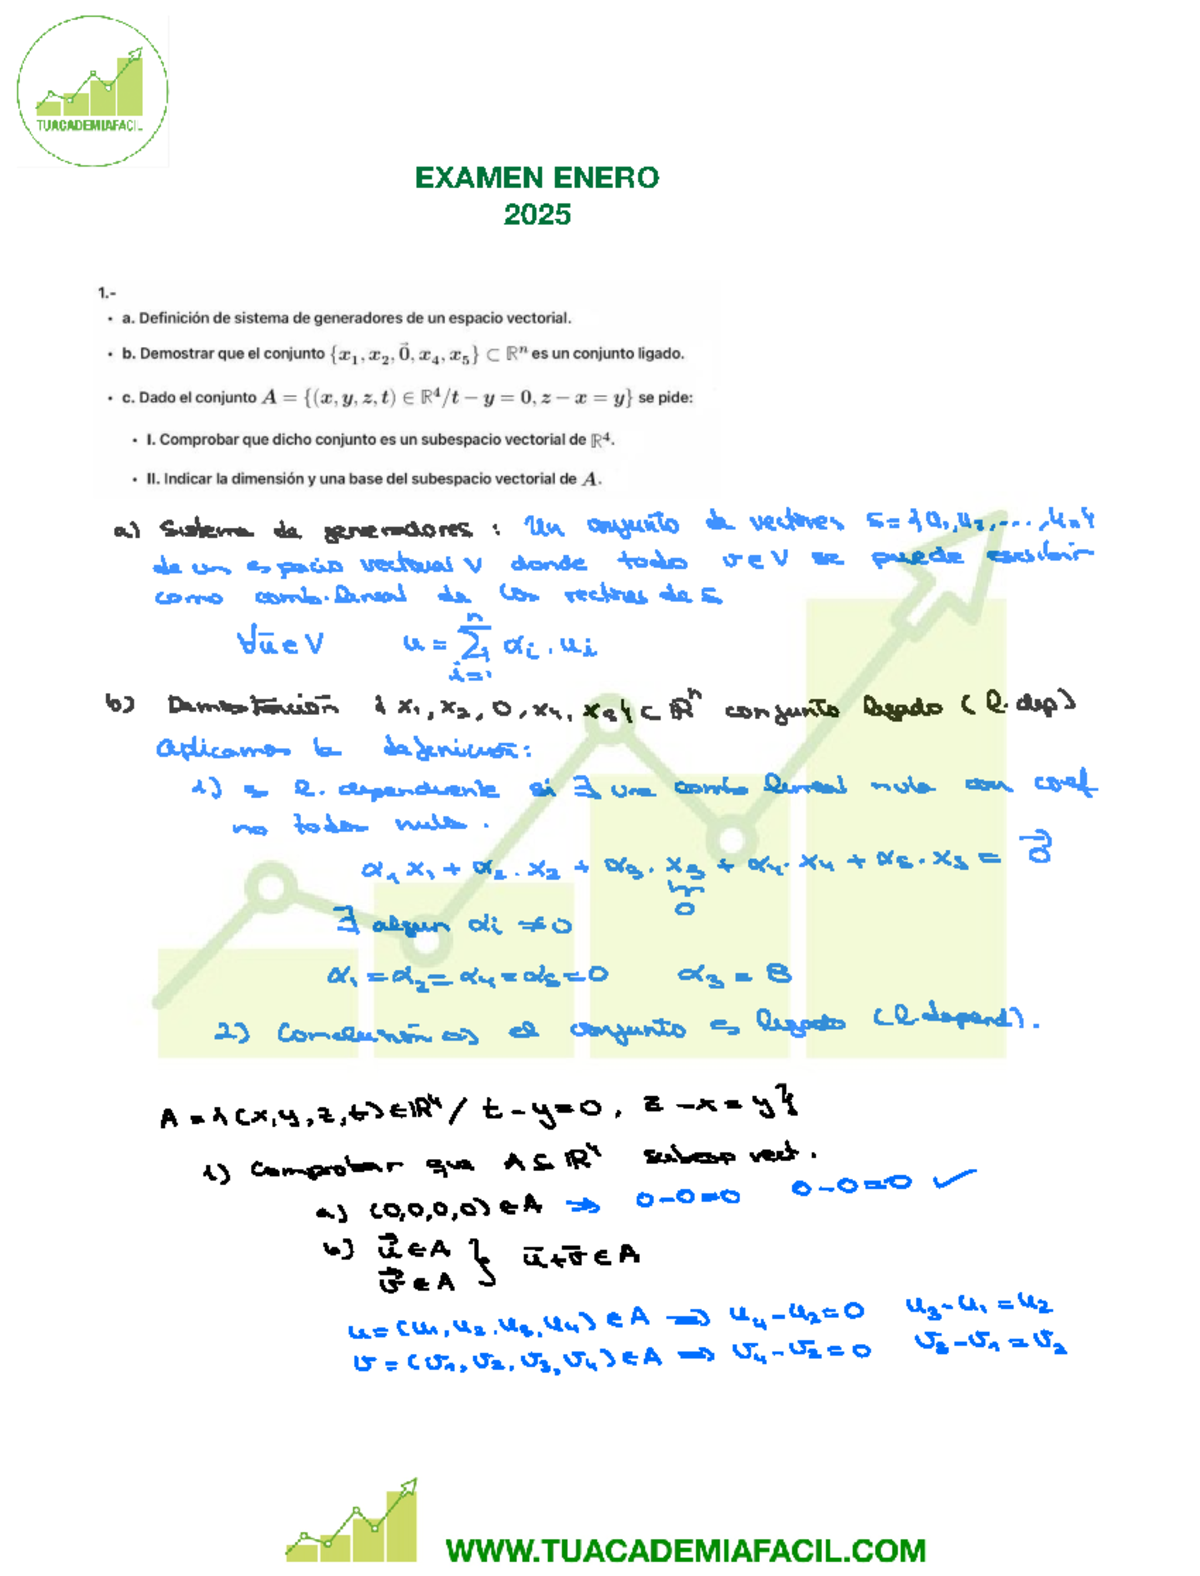 TUACADEMIAFACIL
EXAMEN ENERO
2025
1.-
• a. Definición de sistema de generadores de un espacio vectorial.
• b. Demostrar que el conjunto {x₁, x₂, 0⃗, x₄, x₅} ⊂ ℝⁿ es un conjunto ligado.
• c. Dado el conjunto A = {(x, y, z, t) ∈ ℝ⁴/t − y = 0, z − x = y} se pide:
• I. Comprobar que dicho conjunto es un subespacio vectorial de ℝ⁴.
• II. Indicar la dimensión y una base del subespacio vectorial de A.
a) Sistema de generadores : Un conjunto de vectores S={u₁,u₂,...,uₙ}
de un espacio vectorial V donde todo v∈V se puede escribir
como comb. lineal de los vectores de S
∀ū∈V u = ∑ⁿᵢ₌₁ αᵢ . uᵢ
b) Demostración {x₁, x₂, 0, x₄, x₅} ⊂ ℝⁿ conjunto ligado (l. dep)
Aplicamos la definición:
1) es l. dependiente si ∃ una comb lineal nula con coef
no todos nulos.
α₁x₁ + α₂.x₂ + α₃.x₃ + α₄.x₄ + α₅.x₅ = 0⃗
0
∃ algun αi ≠ 0
α₁ = α₂ = α₄ = α₅ = 0 α₃ = 8
2) Conclusión => el conjunto es ligado (l. depend).
A = {(x,y,z,t)∈ℝ⁴/ t-y=0, z-x=y}
i) Comprobar que A⊆ℝ⁴ subesp vect.
a) (0,0,0,0)∈A => 0-0=0 0-0=0 ✓
b) u⃗∈A } ū+v̄∈A
v⃗∈A
u=(u₁,u₂,u₃,u₄)∈A => u₄-u₂=0 u₃-u₁=u₂
v=(v₁,v₂,v₃,v₄)∈A => v₄-v₂=0 v₃-v₁=v₂
WWW.TUACADEMIAFACIL.COM